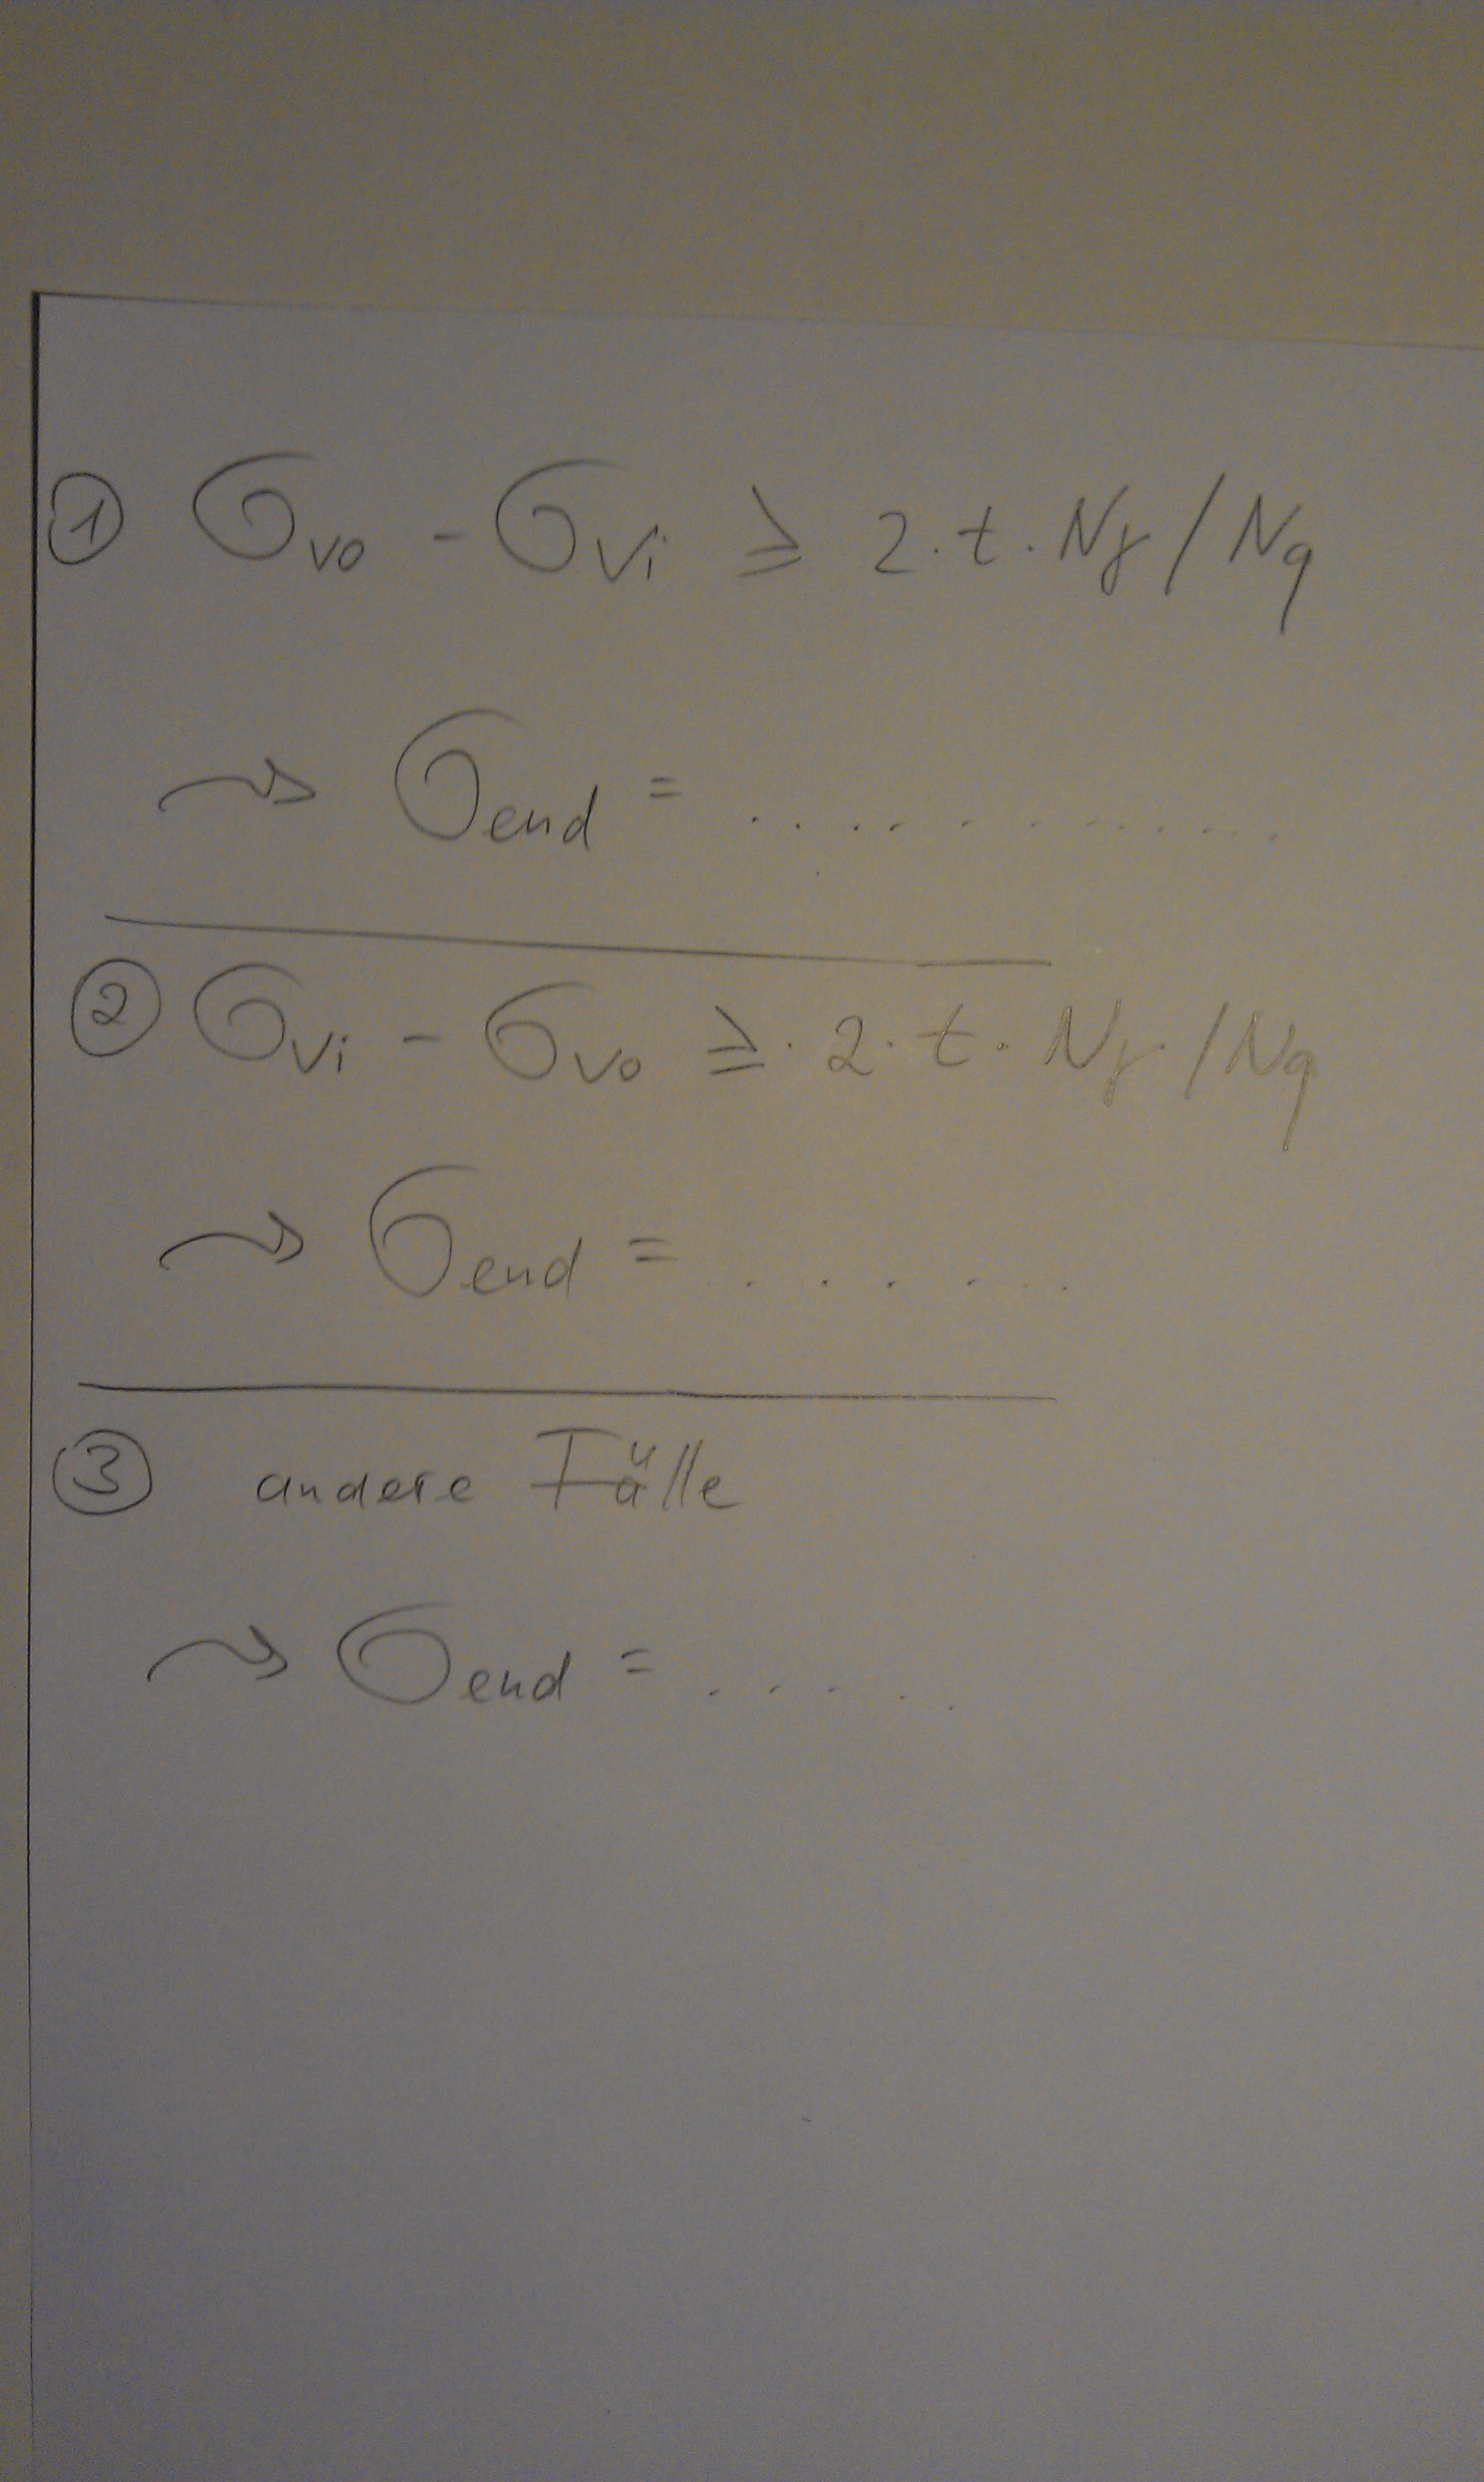 ① σvo - σvi ≥ 2·t·Nγ/Nq
⤳ σend = ..............
② σvi - σvo ≥ 2·t·Nγ/Nq
⤳ σend = .......
③ andere Fälle
⤳ σend = .....